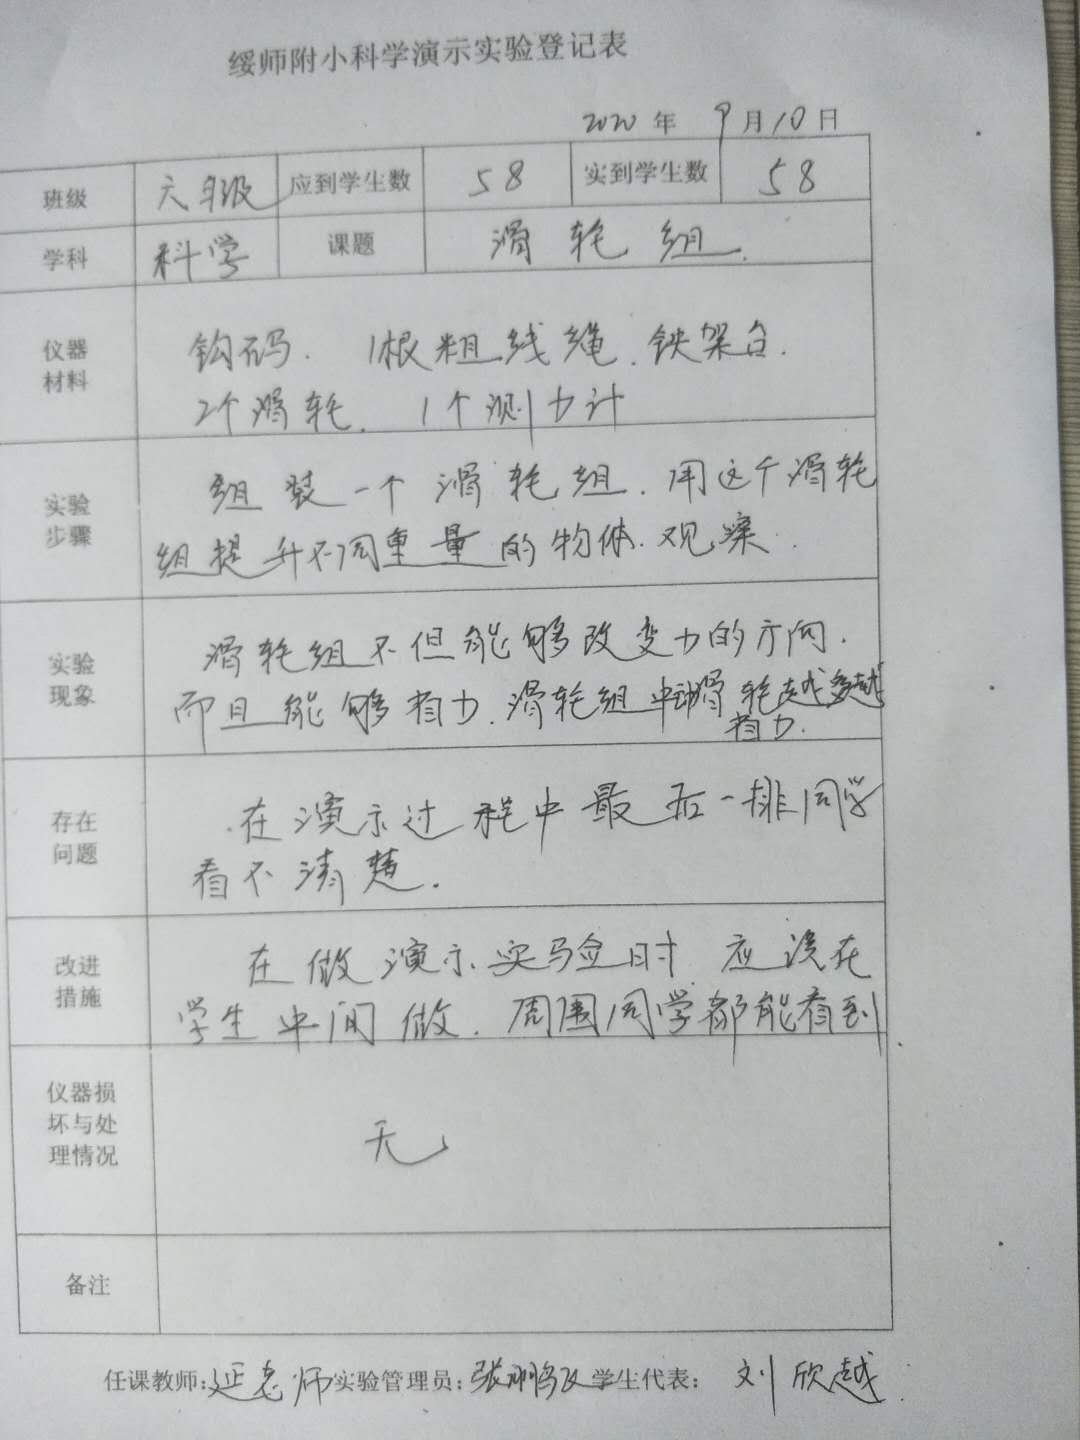 绥师附小科学演示实验登记表
2020 年 9 月 10 日
班级 六年级 应到学生数 58 实到学生数 58
学科 科学 课题 滑轮组.
仪器材料
钩码. 1根粗线绳. 铁架台.
2个滑轮. 1个测力计
实验步骤
组装一个滑轮组. 用这个滑轮
组提升不同重量的物体. 观察.
实验现象
滑轮组不但能够改变力的方向.
而且能够省力. 滑轮组中动滑轮越多越
省力.
存在问题
在演示过程中最后一排同学
看不清楚.
改进措施
在做演示实验时 应该在
学生中间做. 周围同学都能看到
仪器损坏与处理情况
无
备注
任课教师:延老师 实验管理员:张 学生代表: 刘欣越